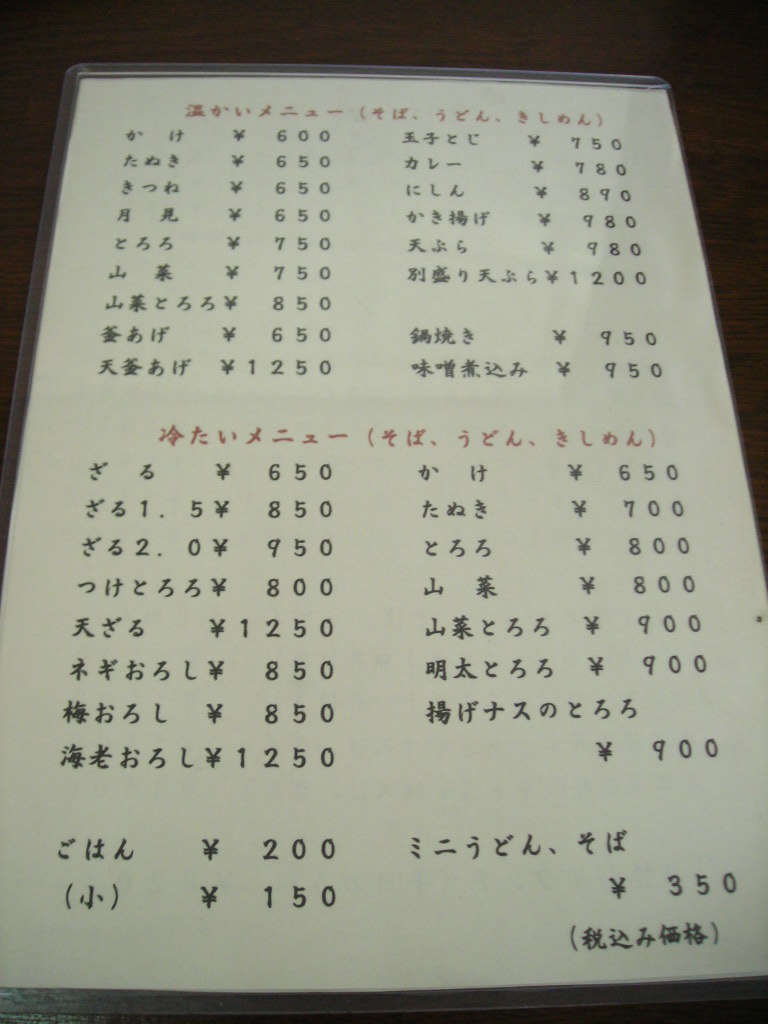 温かいメニュー(そば、うどん、きしめん)
かけ ¥ 600
たぬき ¥ 650
きつね ¥ 650
月見 ¥ 650
とろろ ¥ 750
山菜 ¥ 750
山菜とろろ¥ 850
釜あげ ¥ 650
天釜あげ ¥1250
玉子とじ ¥ 750
カレー ¥ 780
にしん ¥ 890
かき揚げ ¥ 980
天ぷら ¥ 980
別盛り天ぷら¥1200
鍋焼き ¥ 950
味噌煮込み ¥ 950
冷たいメニュー(そば、うどん、きしめん)
ざる ¥ 650
ざる1.5¥ 850
ざる2.0¥ 950
つけとろろ¥ 800
天ざる ¥1250
ネギおろし¥ 850
梅おろし ¥ 850
海老おろし¥1250
かけ ¥ 650
たぬき ¥ 700
とろろ ¥ 800
山菜 ¥ 800
山菜とろろ ¥ 900
明太とろろ ¥ 900
揚げナスのとろろ
¥ 900
ごはん ¥ 200
(小) ¥ 150
ミニうどん、そば
¥ 350
(税込み価格)